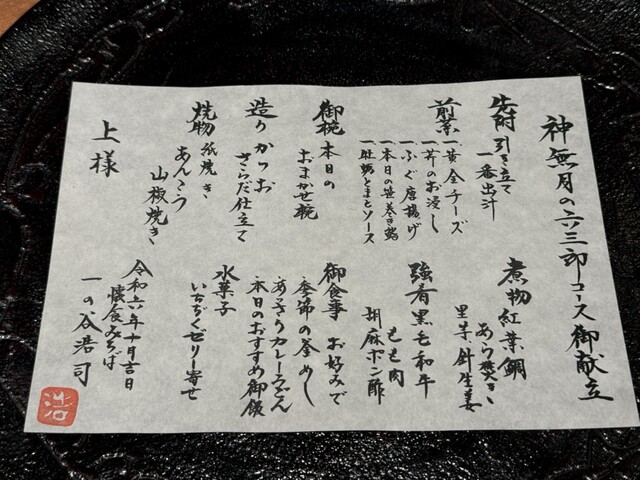 神無月の六三郎コース御献立
先附 引き立て
一番出汁
前菜 一、黄金チーズ
一、茸のお浸し
一、ふぐ唐揚げ
一、本日の笹巻き鮨
一、牡蛎とまとソース
御椀 本日の
おまかせ椀
造り かつお
さらだ仕立て
焼物 紙焼き
あんこう
山椒焼き
上様
煮物 紅葉鯛
あら焚き
里芋 針生姜
強肴 黒毛和牛
もも肉
胡麻ポン酢
御食事 お好みで
季節の釜めし
あさりカレーうどん
本日のおすすめ御飯
水菓子
いちぢくゼリー寄せ
令和六年十月吉日
懐食みちば
一の谷浩司
浩